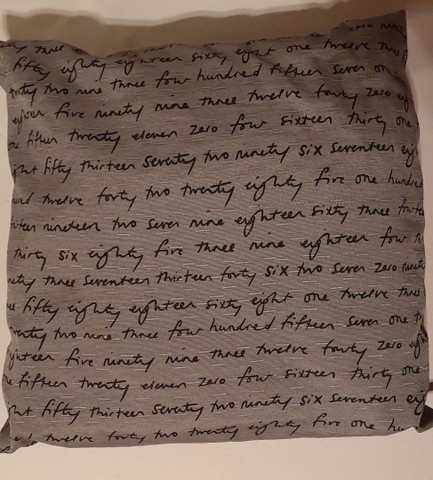 three zero nine
fifty eighty eighteen sixty eight one twelve three
forty two nine three four hundred fifteen seven on
eighteen five ninety nine three twelve fourty zero eig
one fifteen twenty eleven zero four sixteen thirty one
ight fifty thirteen seventy two ninety six seventeen eig
twelve forty two twenty eighty five one hundred
nineteen two seven nine eighteen sixty three fourteen
thirty six eighty five three nine eighteen four
three seventeen thirteen forty six two seven zero ninety
fifty eighty eighteen sixty eight one twelve three
twenty two nine three four hundred fifteen seven one
five ninety nine three twelve fourty zero
fifteen twenty eleven zero four sixteen thirty one
ght fifty thirteen seventy two ninety six seventeen eig
twelve forty two twenty eighty five one hu